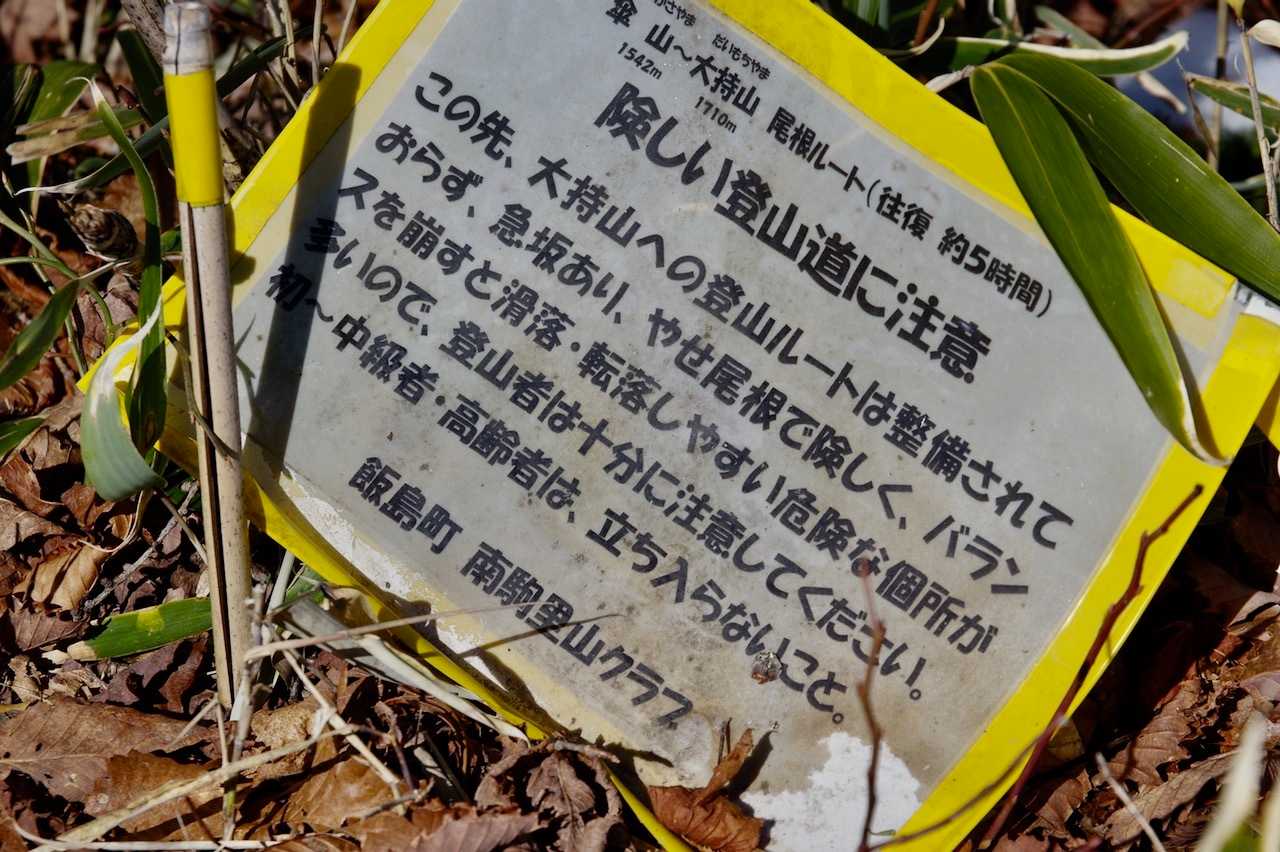 かさやま だいもちやま
傘 山～大持山 尾根ルート（往復 約5時間）
1542m 1710m
険しい登山道に注意
この先、大持山への登山ルートは整備されて
おらず、急坂あり、やせ尾根で険しく、バラン
スを崩すと滑落・転落しやすい危険な個所が
多いので、登山者は十分に注意してください。
初～中級者・高齢者は、立ち入らないこと。
飯島町 南駒里山クラブ